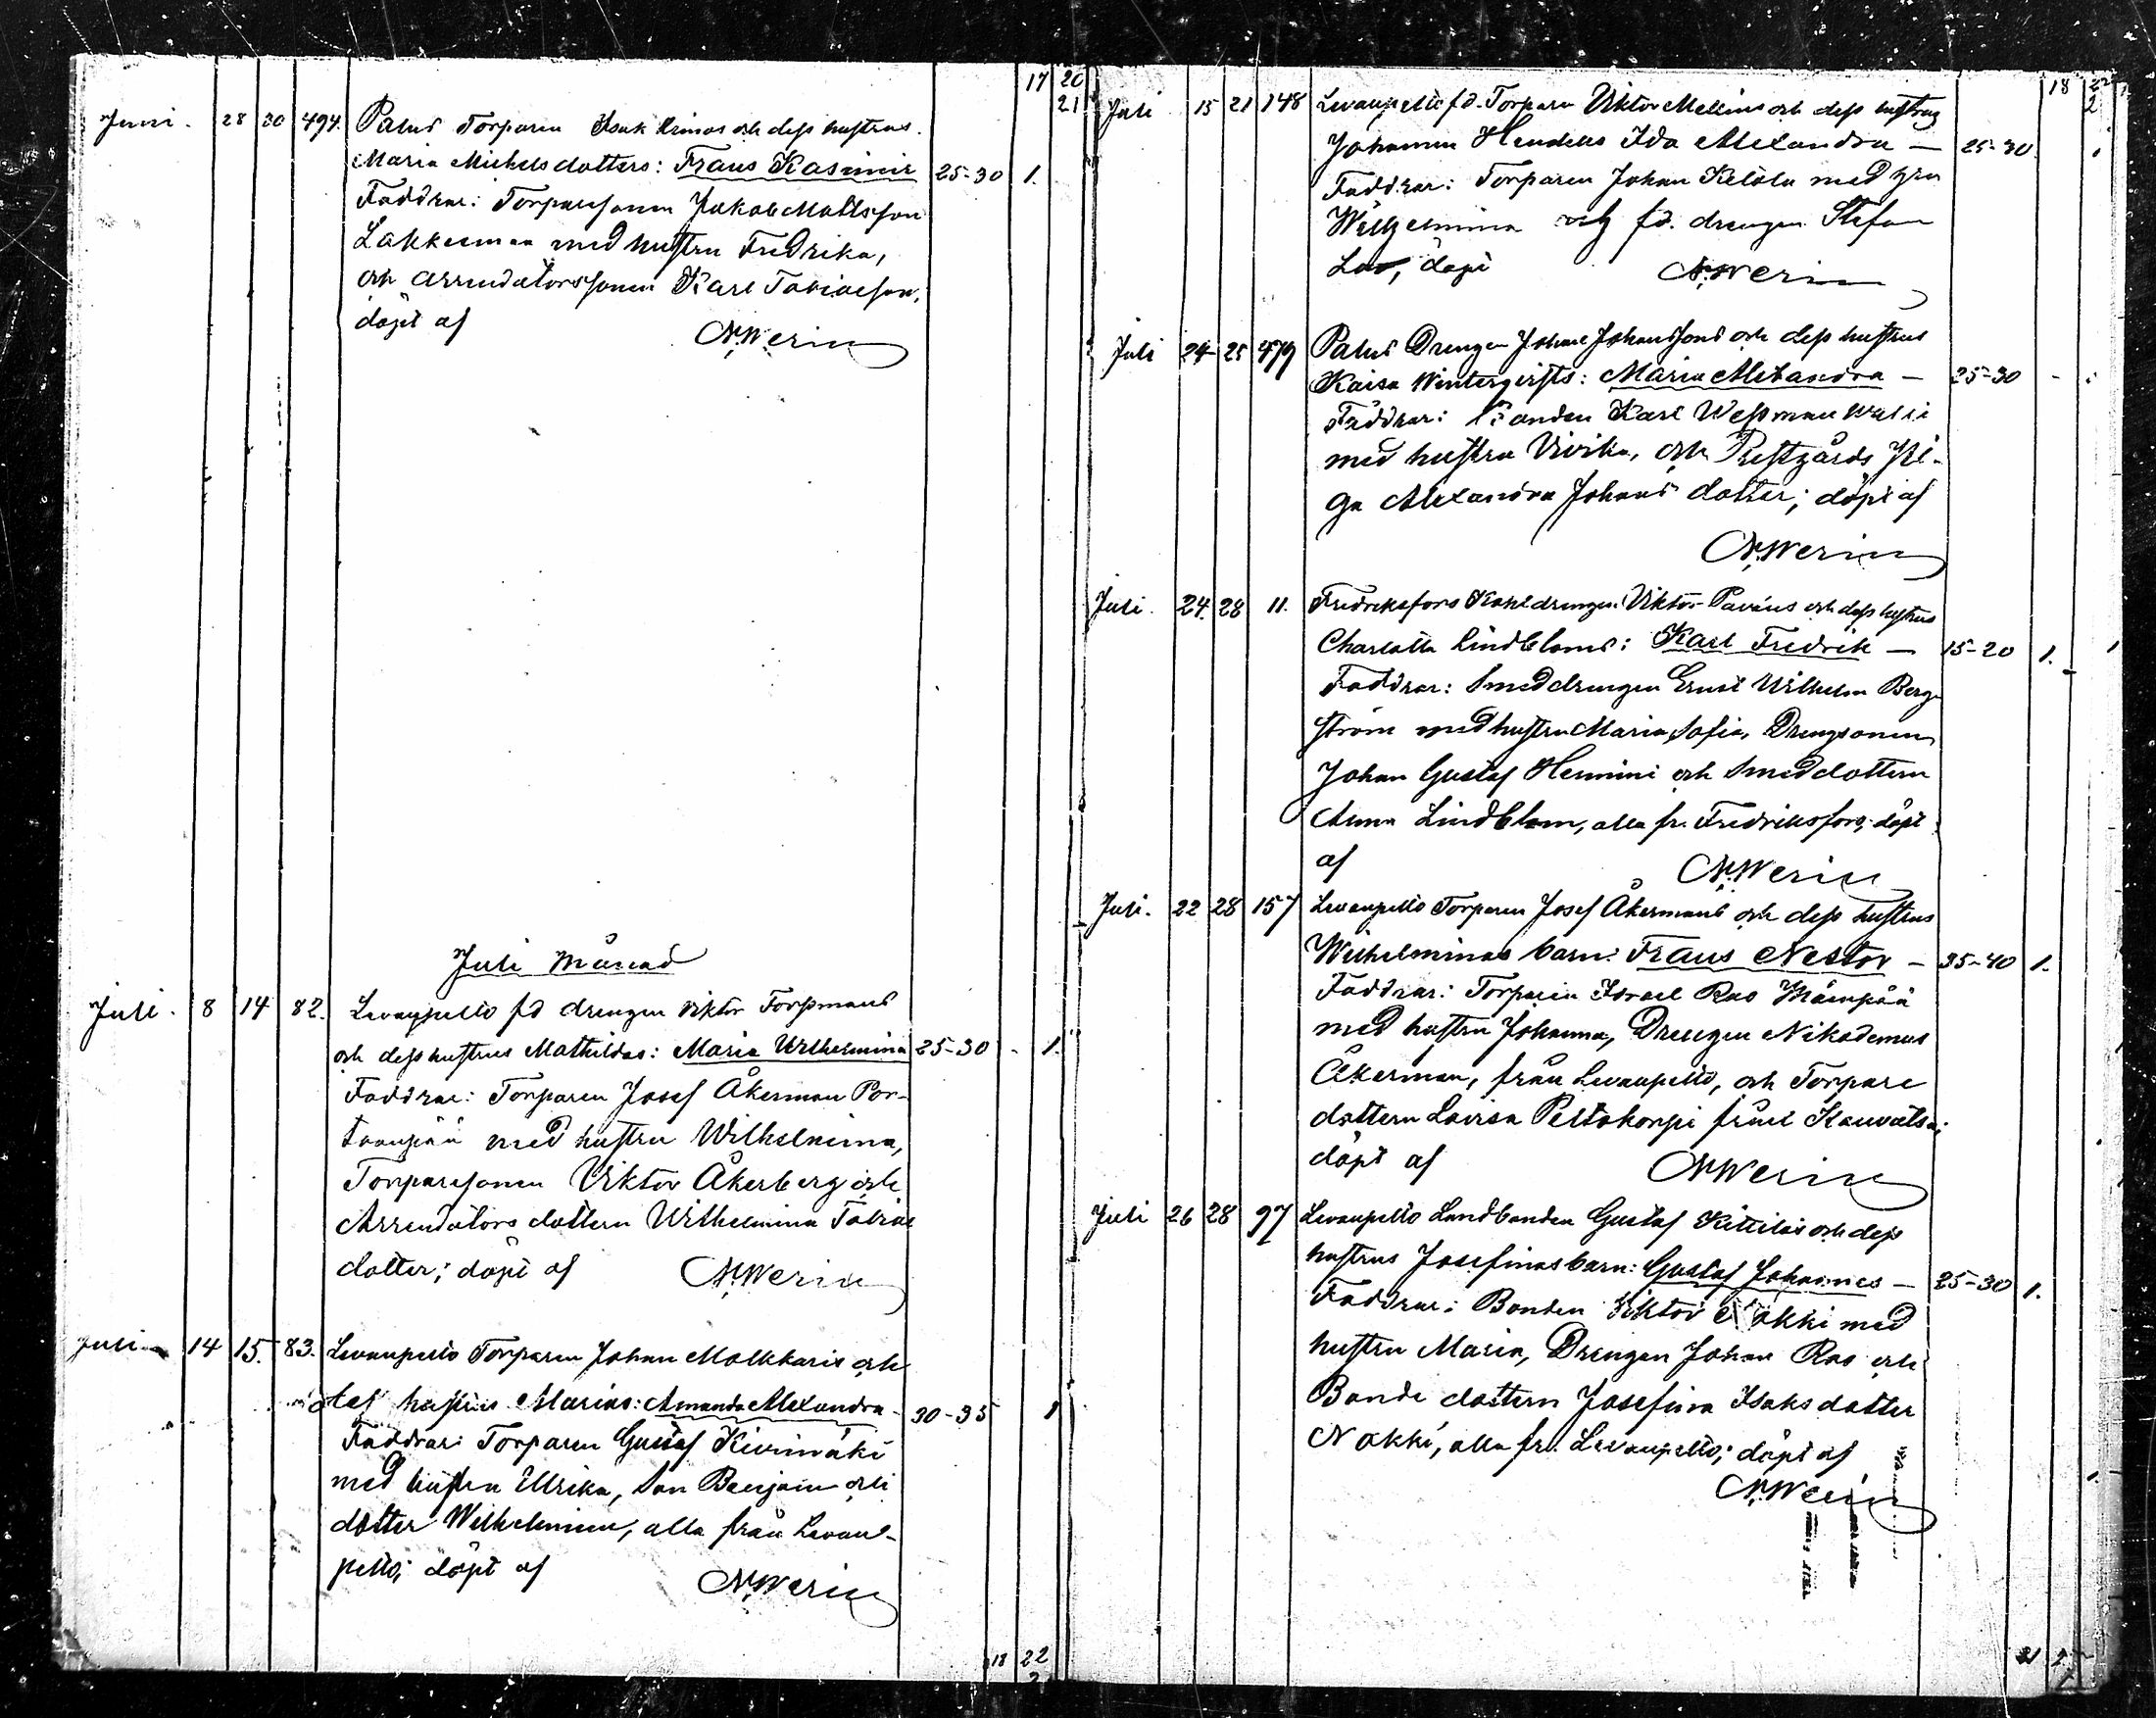 17 20
21
Juni. 28 30 494. Palus Torparen Isak Rimas och dess hustrus
Maria Michelsdotters: Frans Kasimir 25-30 1.
Faddrar: Torparesonen Jakob Mattsson
Lakkeeman med hustru Fredrika,
och arrendatorssonen Karl Tobiasson,
döpt af N. Werin
Juli Månad
Juli. 8 14 82. Levanpelto fd drengen Viktor Forssmans
och dess hustrus Mathildas: Maria Wilhelmina 25-30 - 1.
Faddrar: Torparen Josef Åkerman Por-
traanpää med hustru Wilhelmina,
Torparesonen Viktor Åkerberg och
Arrendators dottern Wilhelmina Tobias
dotter; döpt af N. Werin
Juli 14 15. 83. Levanpelto Torparen Johan Malkkaris och
hustrus Marias: Amanda Alexandra - 30-35 1
Faddrar: Torparen Gustaf Kivimäki
med hustru Ulrika, Son Benjam och
dotter Wilhelmina, alla från Levan-
pelto; döpt af N. Werin
18 22
2
18 22
2
Juli 15 21 148 Levanpelto fd. Torparn Viktor Mellins och dess hustrus
Johanna Ida Alexandra - 25-30.
Faddrar: Torparen Johan Kelola med hru
Wilhelmina och fd. drengen Stefan
döpt N. Werin
Juli 24 25 479 Palus Drengen Johan Johanssons och dess hustrus
Kaisa Wintergrists: Maria Alexandra - 25-30 -
Faddrar: Karl Wessman
med hustru Vivika, och Prestgårds Pi-
ga Alexandra Johans dotter; döpt af
N. Werin
Juli. 24. 28 11. Fredriksfors Kohldrengen Viktor och dess hustrus
Charlotta Lindbloms: Karl Fredrik - 15-20 1. 1
Faddrar: Smeddrengen Ernst Wilhelm Berg-
ström med hustru Maria Sofia, Drengsonen
Johan Gustaf Hermini och Smeddottern
Anna Lindblom, alla fr. Fredriksfors; döpt
af N. Werin
Juli. 22 28 157 Levanpelto Torparen Josef Åkermans och dess hustrus
Wilhelminas barn: Frans Nestor - 35-40 1.
Faddrar: Torparen Israel Ras Mäenpää
med hustru Johanna, Drengen Nikodemus
Åkerman, från Levanpelto, och Torpare
dottern Lovisa Peltokorpi från Kauvatsa;
döpt af N. Werin
Juli 26 28 97 Levanpelto Landbonden Gustaf Kittilas och dess
hustrus Josefinas barn: Gustaf Johannes - 25-30 1.
Faddrar: Bonden Viktor Nokki med
hustru Maria, Drengen Johan Ras och
Bonde dottern Josefina Isaksdotter
Nokki, alla fr. Levanpelto; döpt af
N. Werin
21